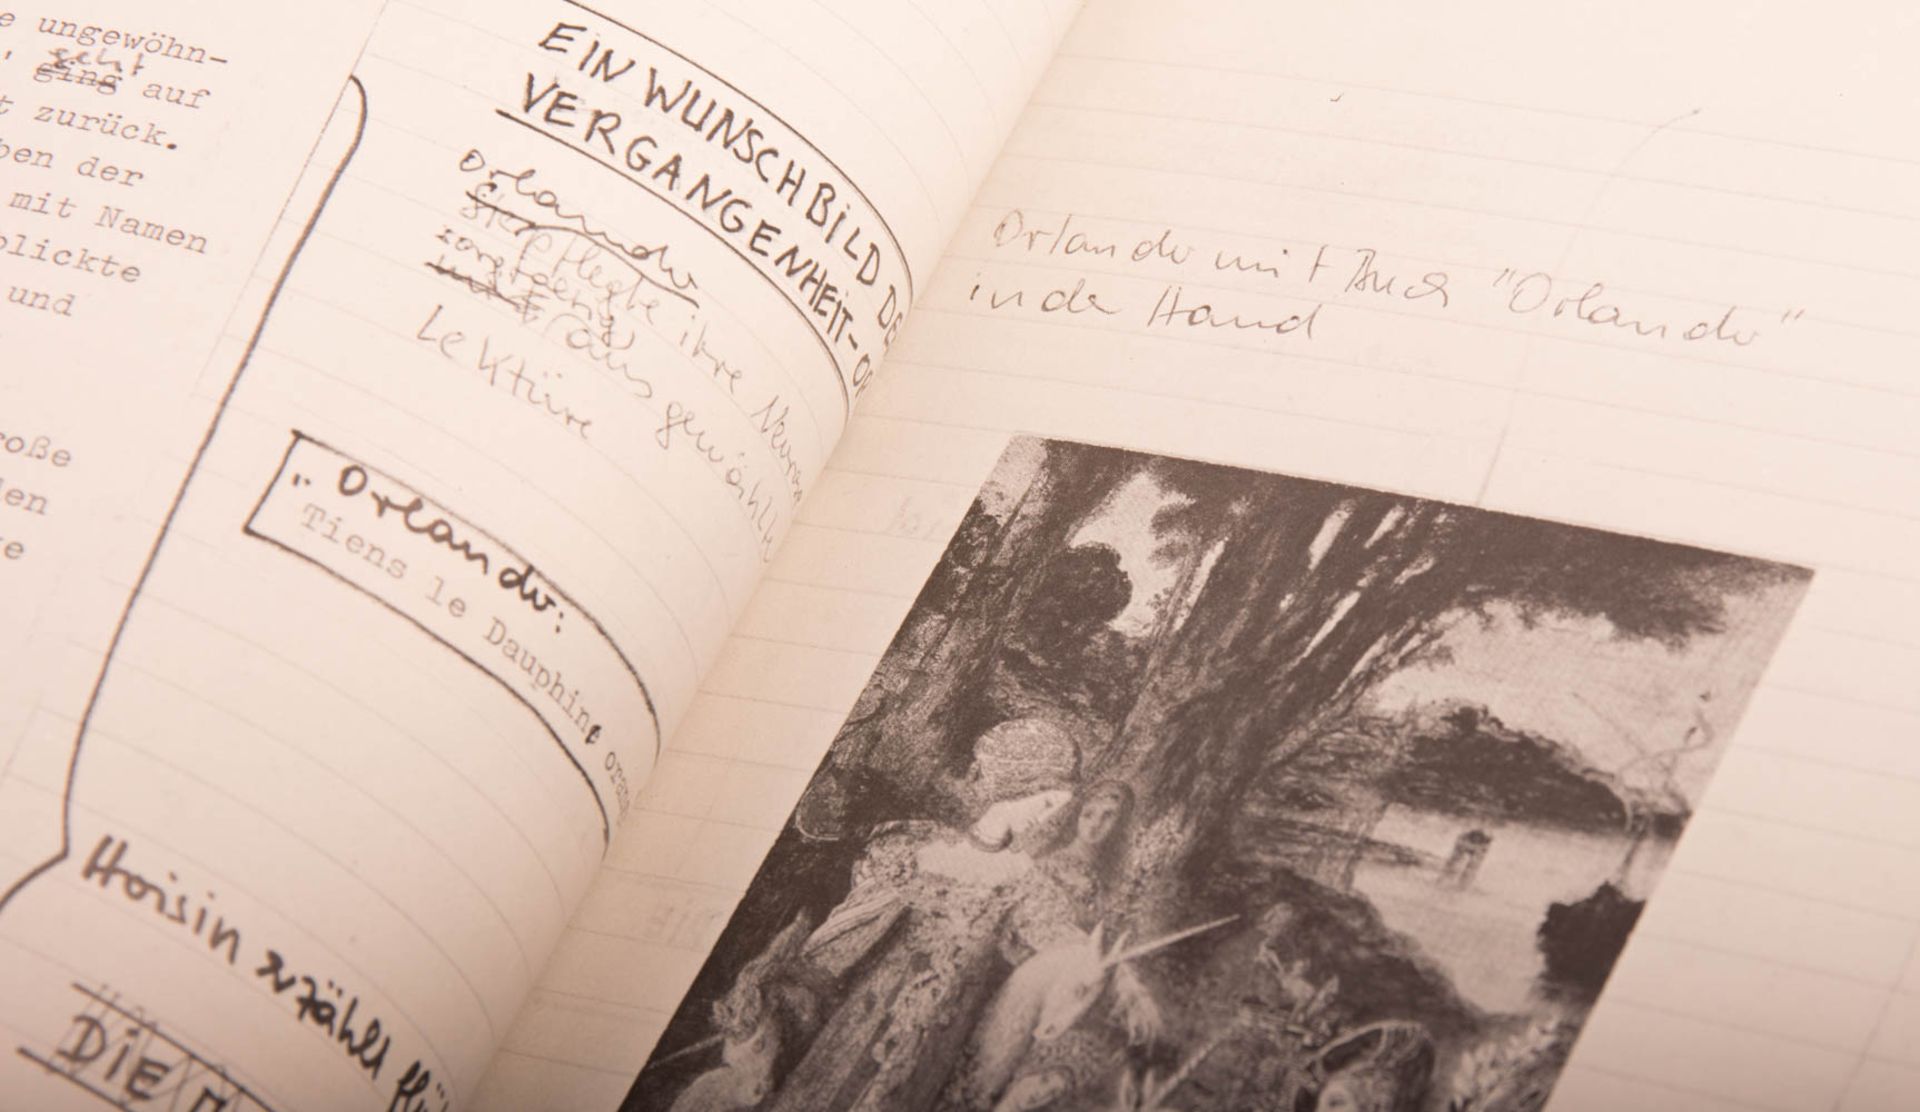 e ungewöhn-
geht
ging auf
t zurück.
ben der
mit Namen
blickte
und
roße
len
EIN WUNSCHBILD DE
VERGANGENHEIT-OR
Orlando
pflegte ihre
ausgewählte
Lektüre
"Orlando:
Tiens le Dauphine
Hoisin erzählt
DIE
Orlando mit Buch "Orlando"
in der Hand